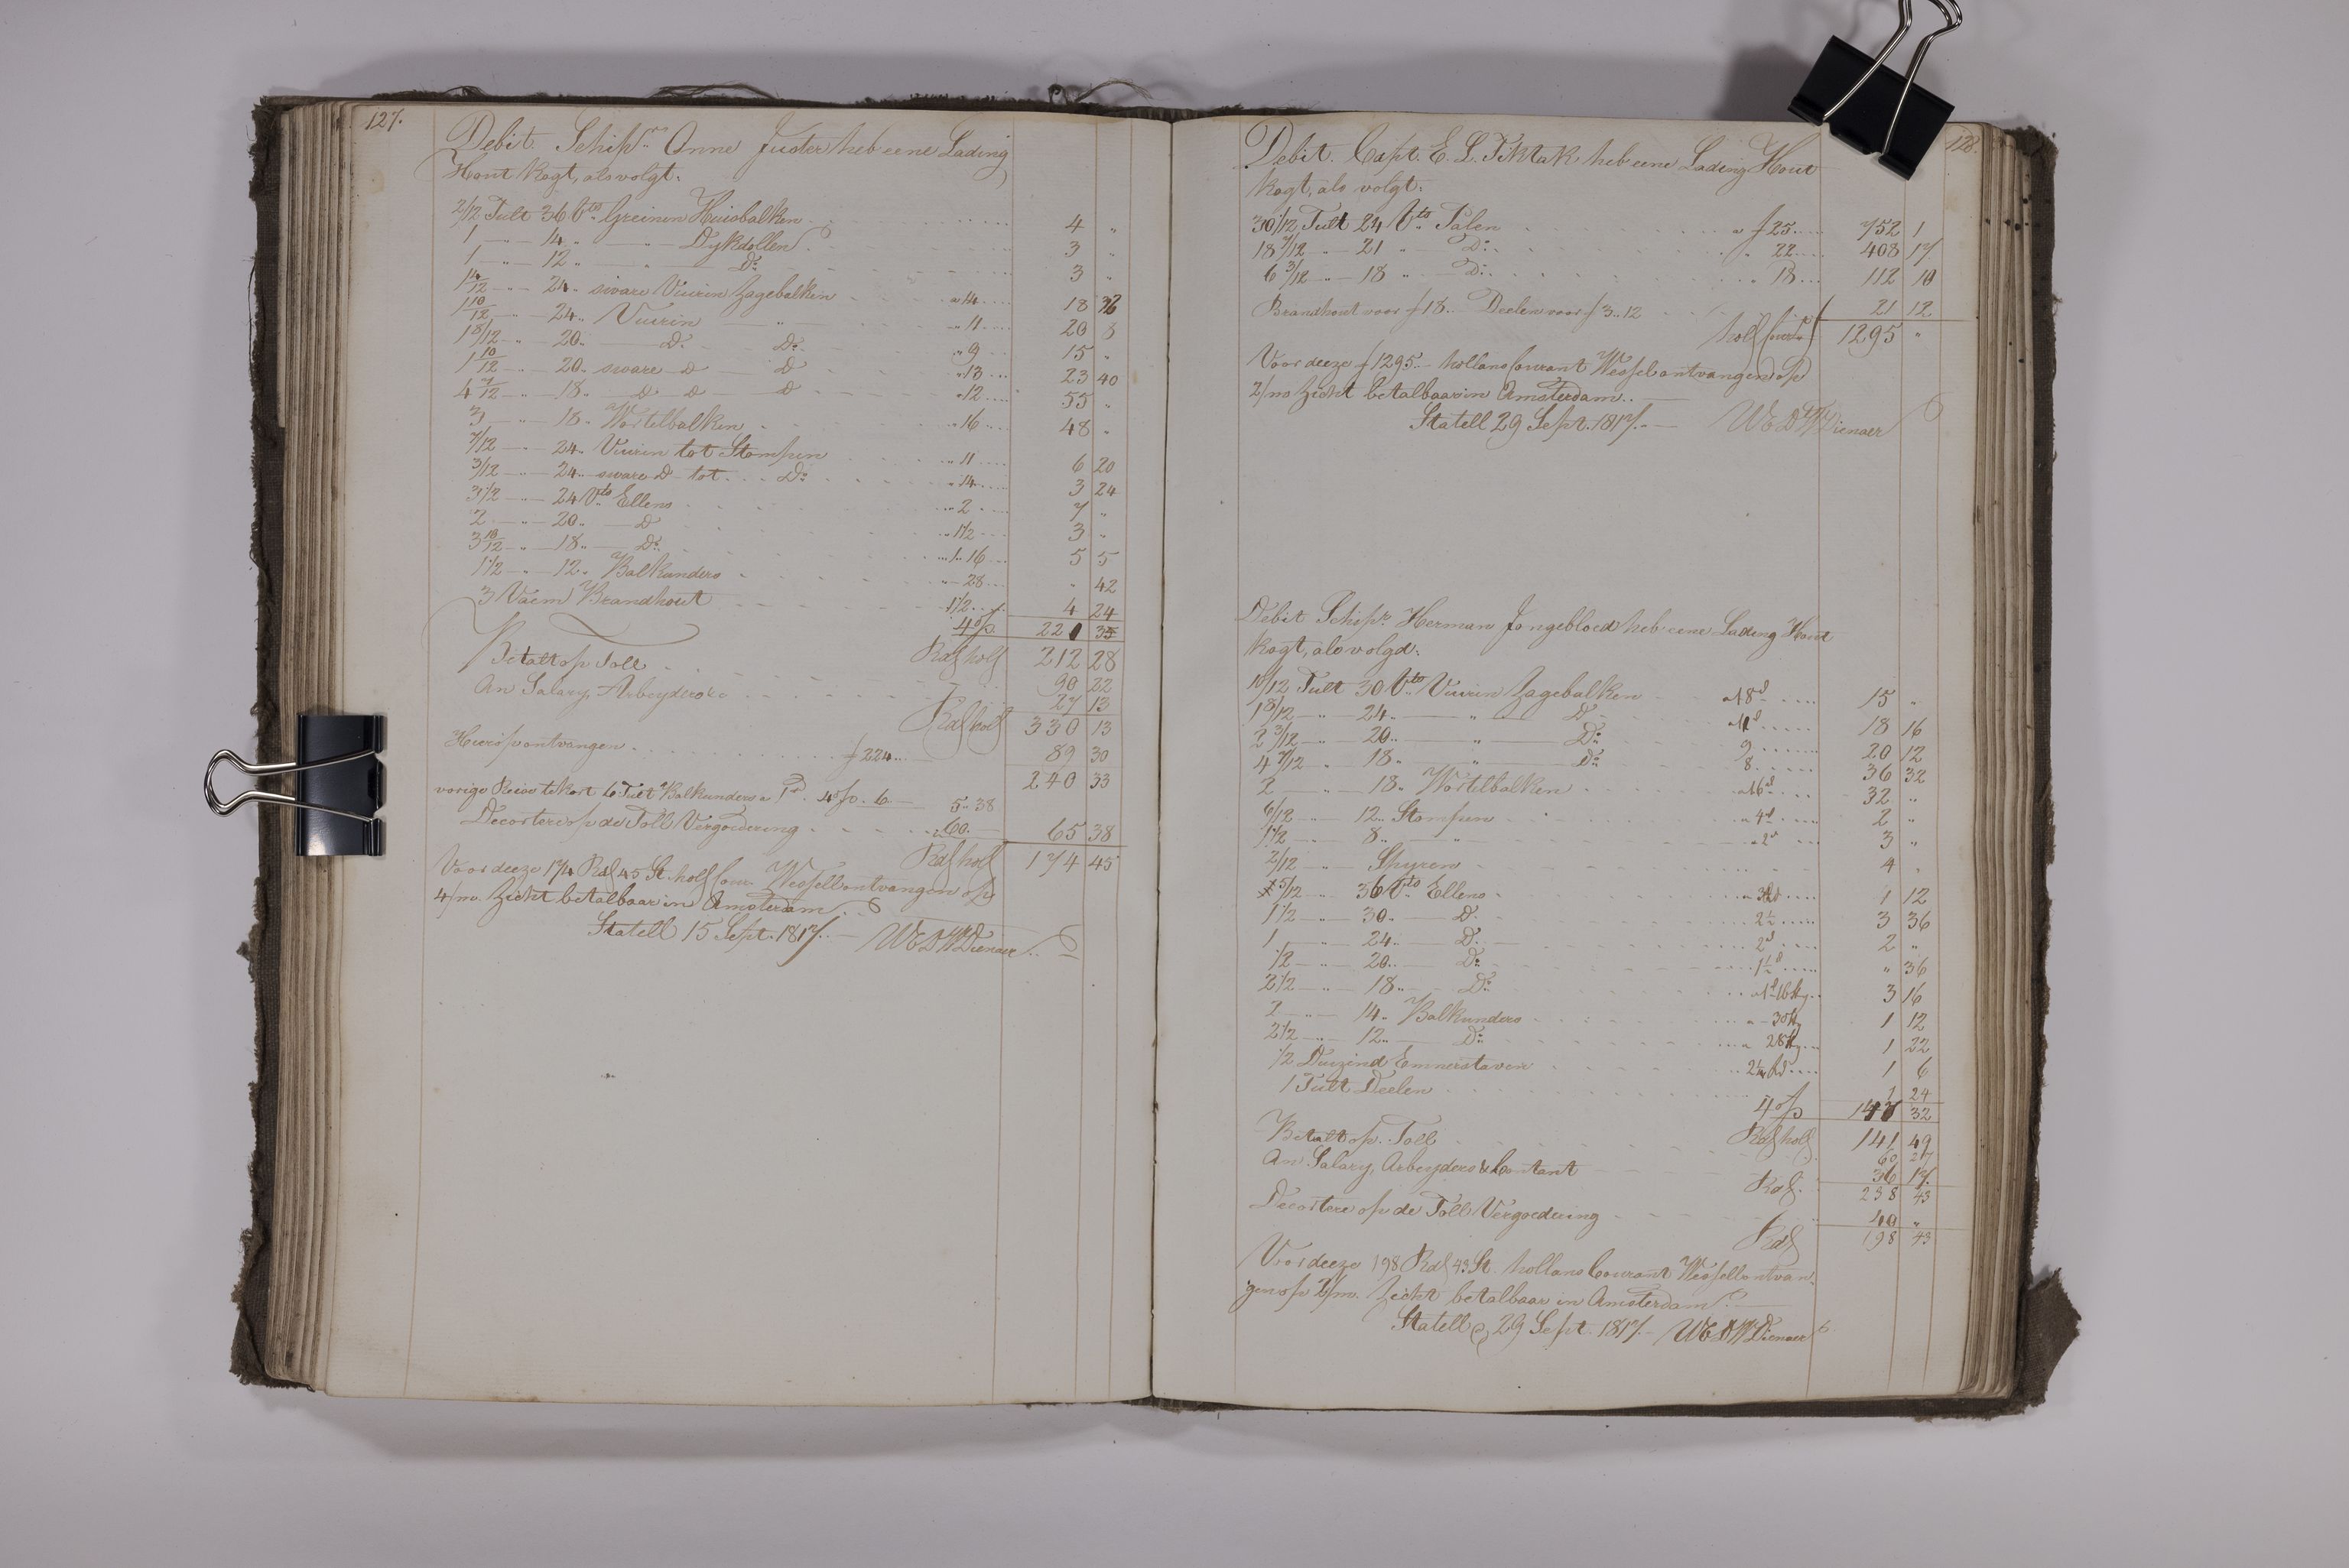 127.
Debit. Schipr. Anne Juster heb eene Lading
Hout kogt, als volgt:
2/12 Tult 36 Vts. Greinen Huisbalken 4 "
1 - " - 14 " - " - Dykdollen 3 "
1 - " - 12 " - " - Do. 3 "
14/12 - " - 24 " sware Viuren Zagebalken " a 14 18 32
1 10/12 - " - 24 " Viuren - " - " 11 20 8
1 8/12 - " - 20 " D. Do. " 9 15 "
1 10/12 - " - 20 " sware D D " 13 23 40
4 7/12 - " - 18 " D D D " 12 55 "
3 - " - 18 " Wortelbalken " 16 48 "
7/12 - " - 24 " Viuren tot Stompen " 11 6 20
3/12 - " - 24 " sware D tot Do. " 14 3 24
3 1/2 - " - 24 Vts. Ellens " 2 7 "
2 - " - 20 " D " 1 1/2 3 "
3 10/12 - " - 18 " Do. " 1 " 16 5 5
1 1/2 - " - 12 " Balkunders " 28 " 42
3 Vaem Brandhout 1 1/2 4 24
4 op 221 35
Rdl holl 212 28
Betalt op Toll 90 22
An Salary, Arbeyders &c 27 13
Rdl holl 330 13
Hierop ontvangen f 224 89 30
240 33
vorige Reise te kort 6 Tult Balkunders a 1 Rd. 4 op. 6 5 " 38
Decortere op de Toll Vergoedering " 60. 65 38
Rdl holl 174 45
Voor deeze 174 Rdl 45 St. holl Cour. Wessel ontvangen op
4/m. Zicht betalbaar in Amsterdam.
Statell 15 Sept. 1817. WED WDienaer
128.
Debit. Capt. E. L. Tiktak, heb eene Lading Hout
kogt, als volgt:
30 1/12 Tult 24 Vts. Palen a f 25 752 1
18 7/12 - " - 21 " Do. " 22 408 17
6 3/12 - " - 18 " Do. " 18 112 10
Brandhout voor f 18 " Deelen voor f 3 " 12 21 12
holl Curt. f 1295 "
Voor deeze f 1295 " hollans Courant Wessel ontvangen op
2/m Zicht betalbaar in Amsterdam.
Statell 29 Sept. 1817. WED WDienaer
Debit Schipr. Herman Jongebloed heb eene Lading Hout
kogt, als volgd:
10/12 Tult 30 Vts. Viuren Zagebalken a 18 d 15 "
1 8/12 - " - 24 " - " - D a 11 d 18 16
2 3/12 - " - 20 " - " - Do. 9 20 12
4 7/12 " 18 " - " - Do. 8 36 32
2 - " - 18 " Wortelbalken a 16 d 32 "
6/12 " 12 " Stompen " 4 d 2 "
1 1/2 " 8 " " " 2 d 3 "
2/12 " Spyren 4 "
5/12 " 36 Vts. Ellens a 3 Rd 1 12
1 1/2 " 30 " D 2 1/2 3 36
1 " 24 " D. 2 d 2 "
1/2 - " - 20 " Do. 1 1/2 d " 36
2 1/2 - " - 18 " Do. a 1 d 16 3 16
2 - " - 14 " Balkunders " 30 1 12
2 1/2 - " - 12 " Do. " 28 1 22
1/2 Duizind Emmerstaven 2 1/4 Rd 1 6
1 Tult Deelen 1 24
4 op 147 32
Rdl holl 141 49
Betalt op Toll 60 27
An Salary, Arbeyders & Contant 36 17
Rdl. 238 43
Decortere op de Toll Vergoedering 40 "
Rdl 198 43
Voor deeze 198 Rdl 43 St. hollans Courant Wessel ontvan-
gen op 2/m. Zicht betalbaar in Amsterdam.
Statell 29 Sept. 1817. WED WDienaer